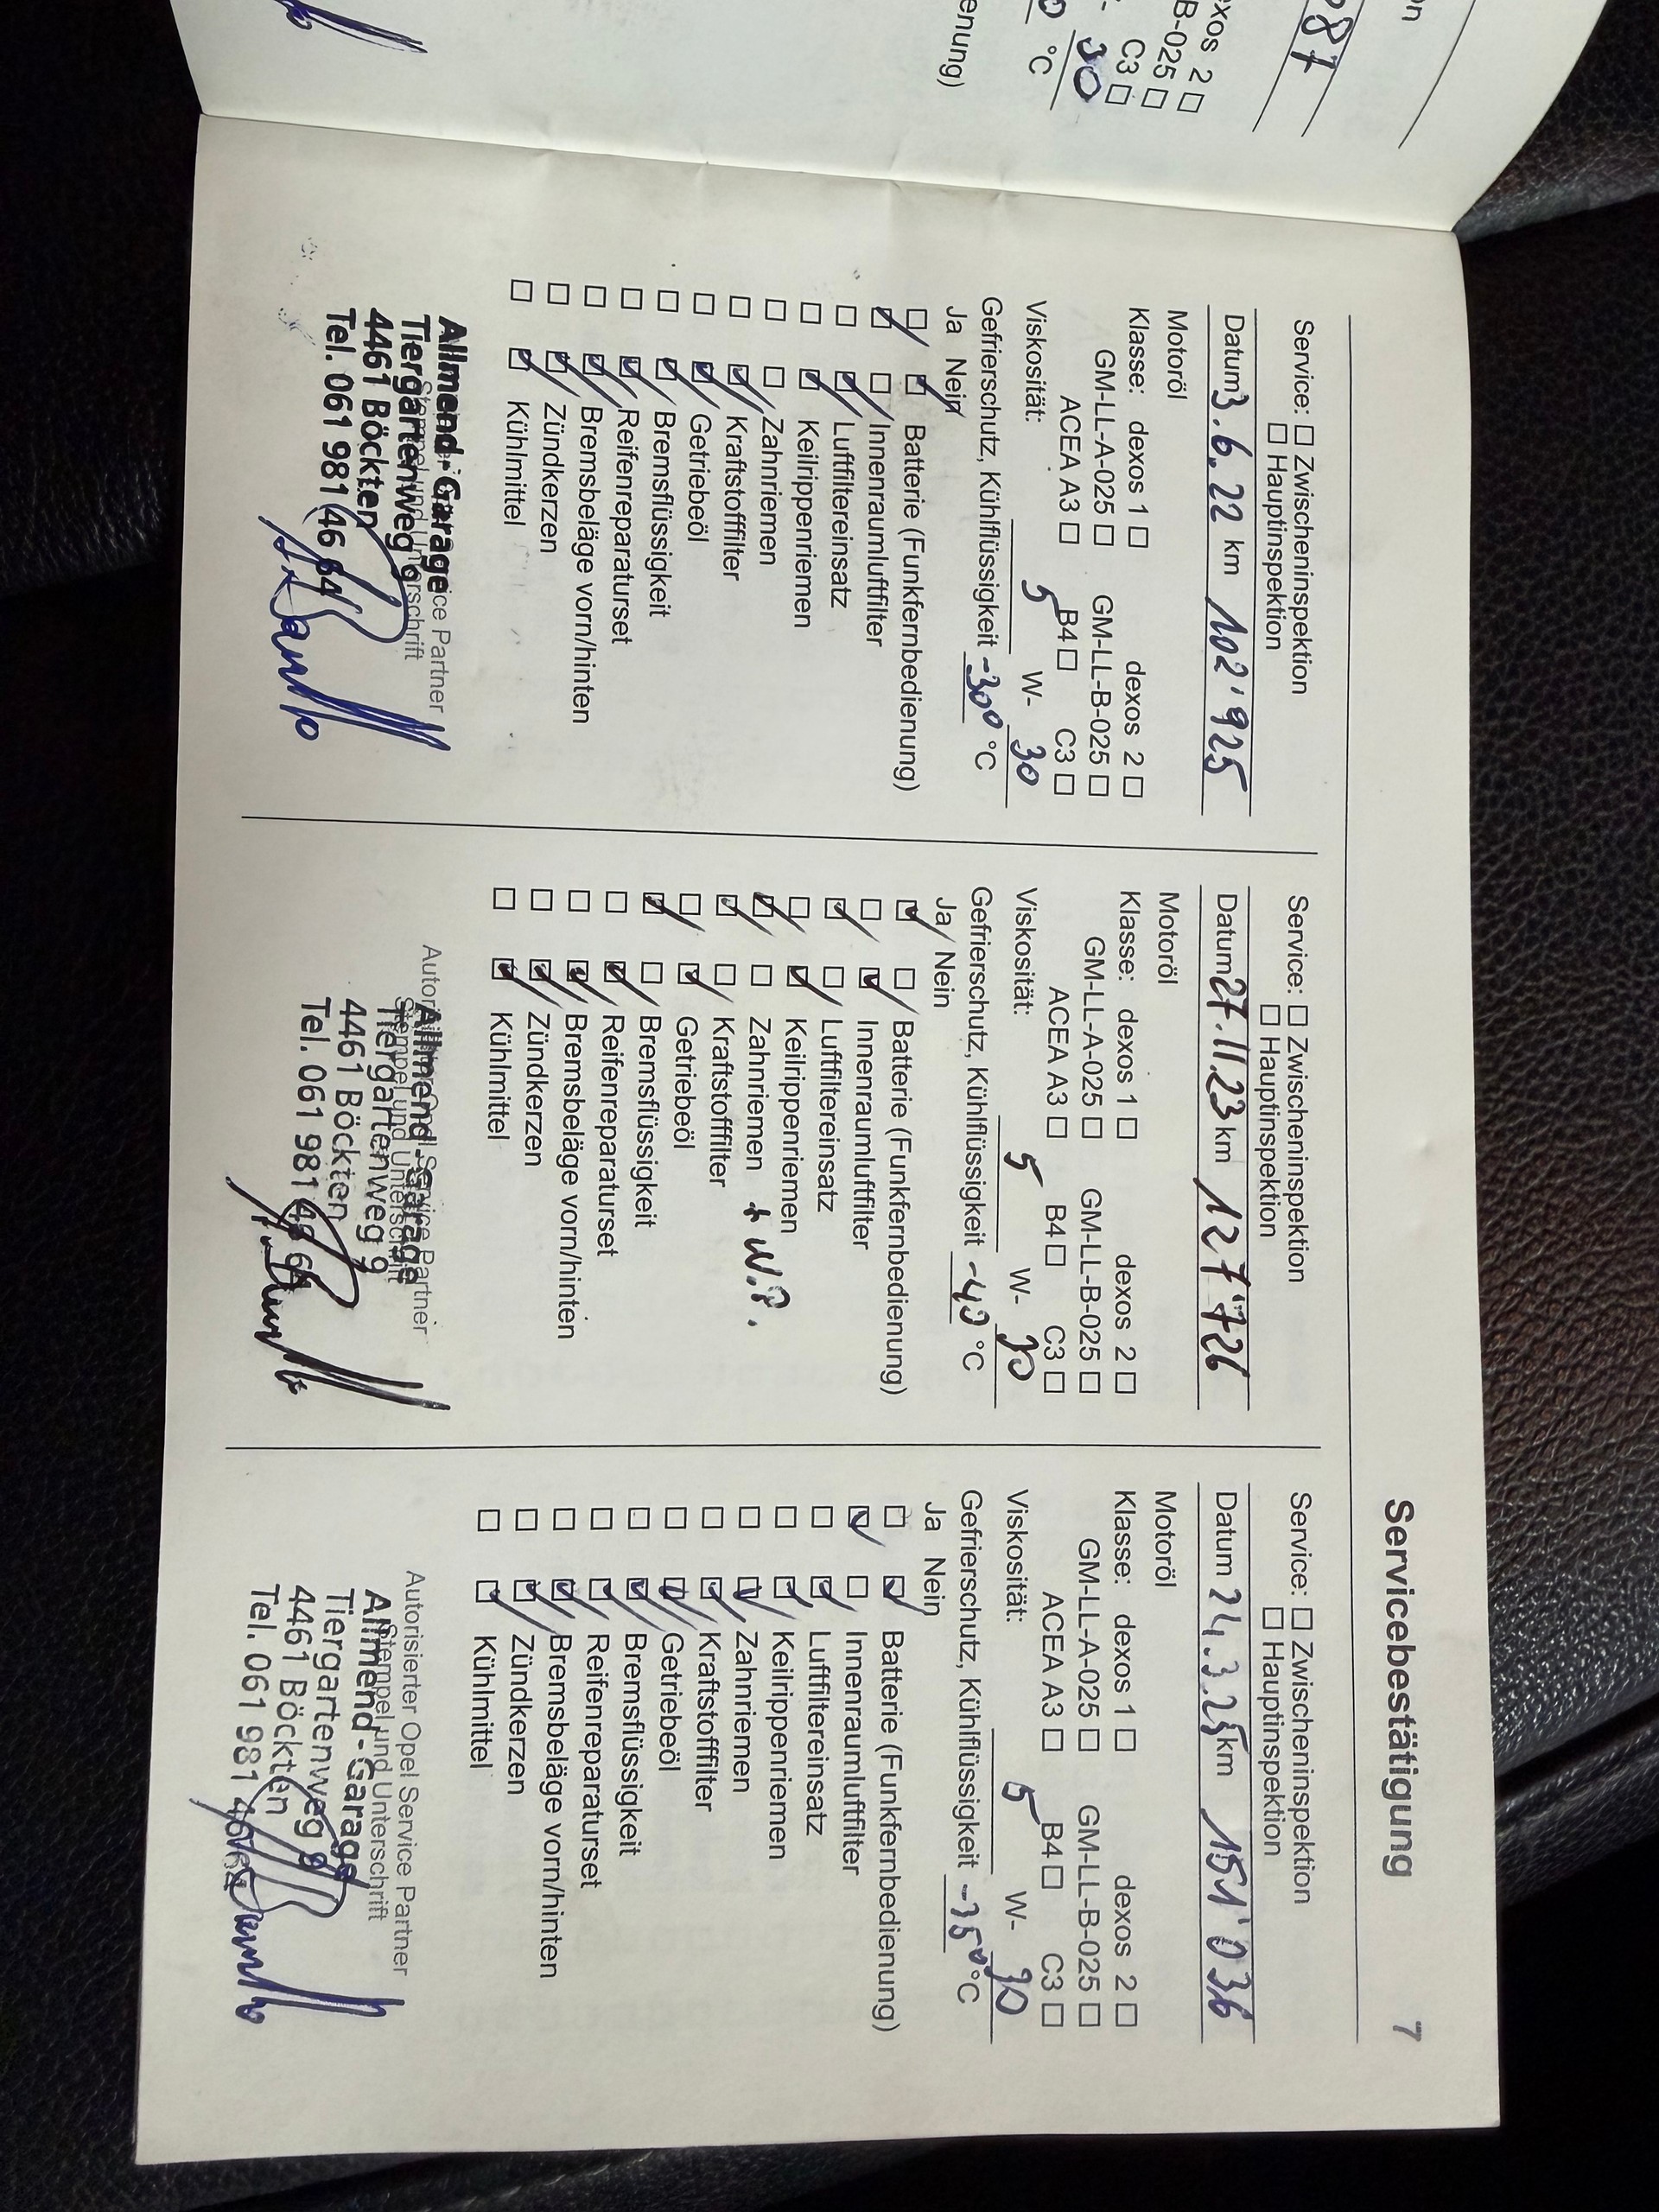 87
exos 2 ☐
B-025 ☐
C3 ☐
30
°C
enung)
Servicebestätigung 7
Service: ☐ Zwischeninspektion
☐ Hauptinspektion
Datum 3.6.22 km 102'925
Motoröl
Klasse: dexos 1 ☐ dexos 2 ☐
GM-LL-A-025 ☐ GM-LL-B-025 ☐
ACEA A3 ☐ B4 ☐ C3 ☐
Viskosität: 5 W- 30
Gefrierschutz, Kühlflüssigkeit -30° °C
Ja Nein
☐ ☑ Batterie (Funkfernbedienung)
☑ ☐ Innenraumluftfilter
☐ ☑ Luftfiltereinsatz
☐ ☑ Keilrippenriemen
☐ ☐ Zahnriemen
☐ ☑ Kraftstofffilter
☐ ☑ Getriebeöl
☐ ☑ Bremsflüssigkeit
☐ ☑ Reifenreparaturset
☐ ☑ Bremsbeläge vorn/hinten
☐ ☑ Zündkerzen
☐ ☑ Kühlmittel
Allmend-Garage
Tiergartenweg 9
4461 Böckten
Tel. 061 981 46 64
Service: ☐ Zwischeninspektion
☐ Hauptinspektion
Datum 27.11.23 km 127'726
Motoröl
Klasse: dexos 1 ☐ dexos 2 ☐
GM-LL-A-025 ☐ GM-LL-B-025 ☐
ACEA A3 ☐ B4 ☐ C3 ☐
Viskosität: 5 W- 30
Gefrierschutz, Kühlflüssigkeit -40 °C
Ja Nein
☑ ☐ Batterie (Funkfernbedienung)
☐ ☑ Innenraumluftfilter
☑ ☐ Luftfiltereinsatz
☐ ☑ Keilrippenriemen
☑ ☐ Zahnriemen + W.P.
☑ ☐ Kraftstofffilter
☐ ☑ Getriebeöl
☑ ☐ Bremsflüssigkeit
☐ ☑ Reifenreparaturset
☐ ☑ Bremsbeläge vorn/hinten
☐ ☑ Zündkerzen
☐ ☑ Kühlmittel
Allmend-Garage
Tiergartenweg 9
4461 Böckten
Tel. 061 981 46 64
Service: ☐ Zwischeninspektion
☐ Hauptinspektion
Datum 24.3.25 km 151'036
Motoröl
Klasse: dexos 1 ☐ dexos 2 ☐
GM-LL-A-025 ☐ GM-LL-B-025 ☐
ACEA A3 ☐ B4 ☐ C3 ☐
Viskosität: 5 W- 30
Gefrierschutz, Kühlflüssigkeit -35° °C
Ja Nein
☐ ☑ Batterie (Funkfernbedienung)
☑ ☐ Innenraumluftfilter
☐ ☑ Luftfiltereinsatz
☐ ☑ Keilrippenriemen
☐ ☑ Zahnriemen
☐ ☑ Kraftstofffilter
☐ ☑ Getriebeöl
☐ ☑ Bremsflüssigkeit
☐ ☑ Reifenreparaturset
☐ ☑ Bremsbeläge vorn/hinten
☐ ☑ Zündkerzen
☐ ☑ Kühlmittel
Autorisierter Opel Service Partner
Stempel und Unterschrift
Allmend-Garage
Tiergartenweg 9
4461 Böckten
Tel. 061 981 46 64